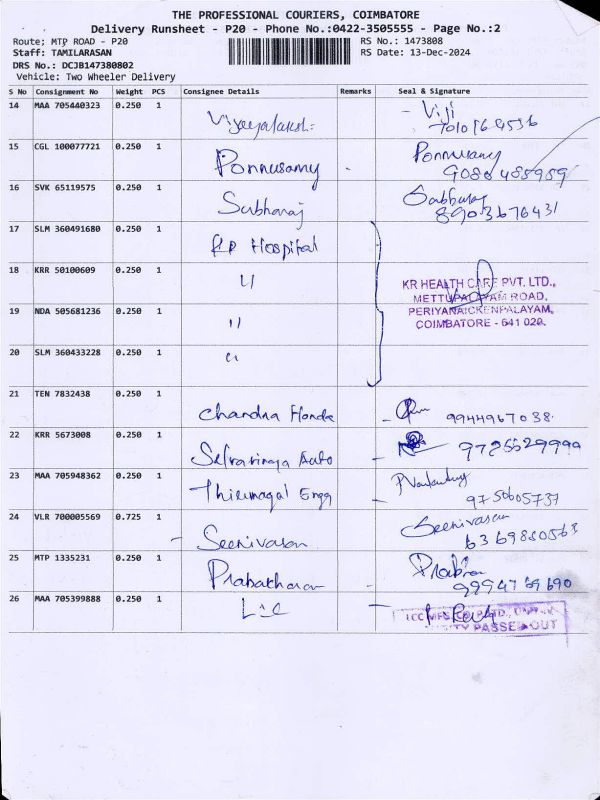 THE PROFESSIONAL COURIERS, COIMBATORE
Delivery Runsheet - P20 - Phone No.:0422-3505555 - Page No.:2
Route; MTP ROAD - P20 RS No.: 1473808
Staff: TAMILARASAN RS Date: 13-Dec-2024
DRS No.: DCJB147380802
Vehicle: Two Wheeler Delivery
S No Consignment No Weight PCS Consignee Details Remarks Seal & Signature
14 MAA 705440323 0.250 1 Viji
15 CGL 100077721 0.250 1 Ponnusamy Ponnusamy
16 SVK 65119575 0.250 1 Subharaj
8903676431
17 SLM 360491680 0.250 1 Hospital
18 KRR 50100609 0.250 1 〃 KR HEALTH CARE PVT. LTD.,
METTUPALAYAM ROAD,
19 NDA 505681236 0.250 1 〃 PERIYANAICKENPALAYAM,
COIMBATORE - 641 020.
20 SLM 360433228 0.250 1 〃
21 TEN 7832438 0.250 1 Chandra Honda 9944967038
22 KRR 5673008 0.250 1 Auto
23 MAA 705948362 0.250 1 Thirumagal Engg
9750605737
24 VLR 700005569 0.725 1 Seenivasan Seenivasan
6369830563
25 MTP 1335231 0.250 1 Prabakharan
26 MAA 705399888 0.250 1 LIC
PASSED OUT